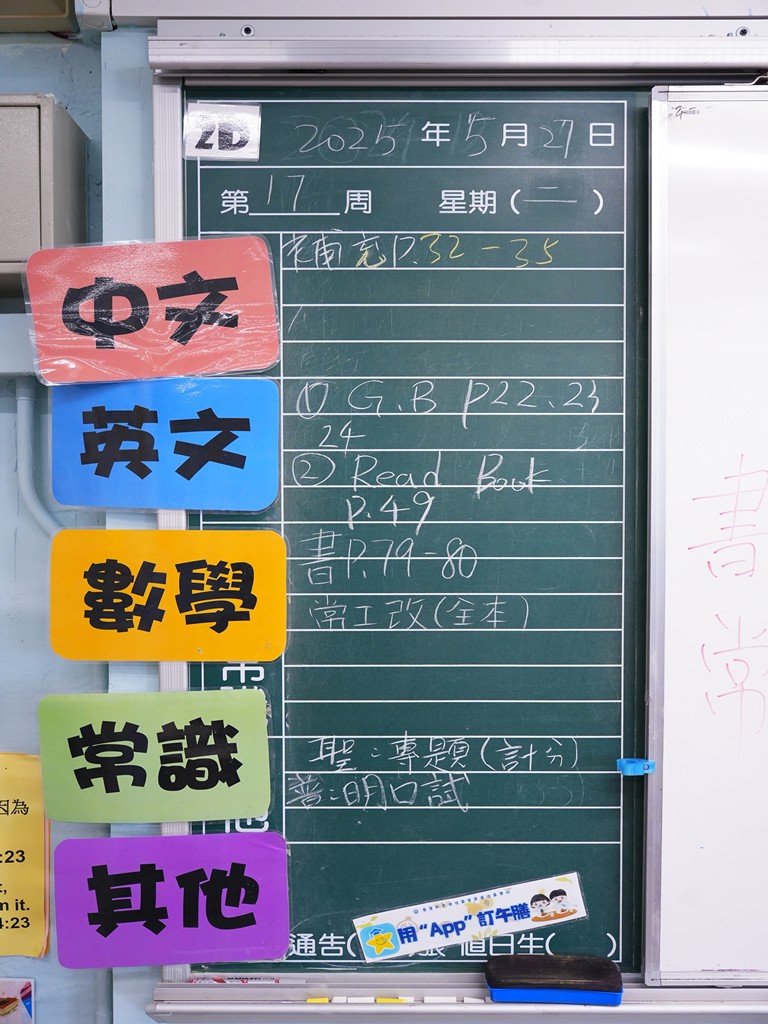 2D
2025 年 5 月 27 日
第 17 周 星期 (二)
中文
補充P.32-35
英文
① G.B P22、23
24
② Read Book
P.49
數學
書P.79-80
常工改(全本)
常識
聖：專題(計分)
普：明口試
其他
用“App”訂午膳
通告( 值日生( )
書
常
因為
:23
t,
m it.
4:23